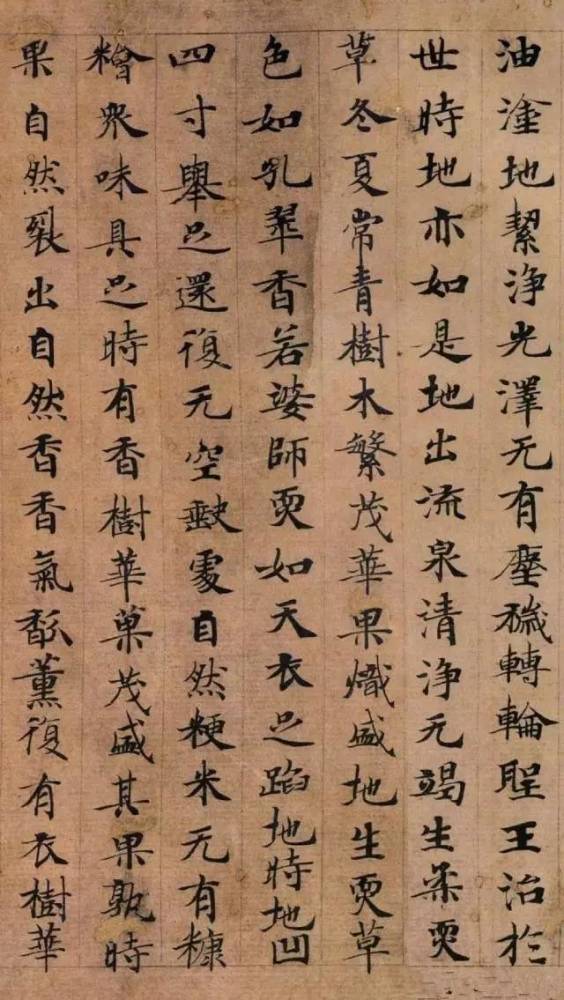 油塗地絜淨光澤无有塵穢轉輪聖王治於
世時地亦如是地出流泉清淨无竭生柔耎
草冬夏常青樹木繁茂華果熾盛地生耎草
色如孔翠香若婆師耎如天衣足蹈地時地凹
四寸舉足還復无空缺處自然粳米无有糠
糩眾味具足時有香樹華菓茂盛其果孰時
果自然裂出自然香香氣薰復有衣樹華